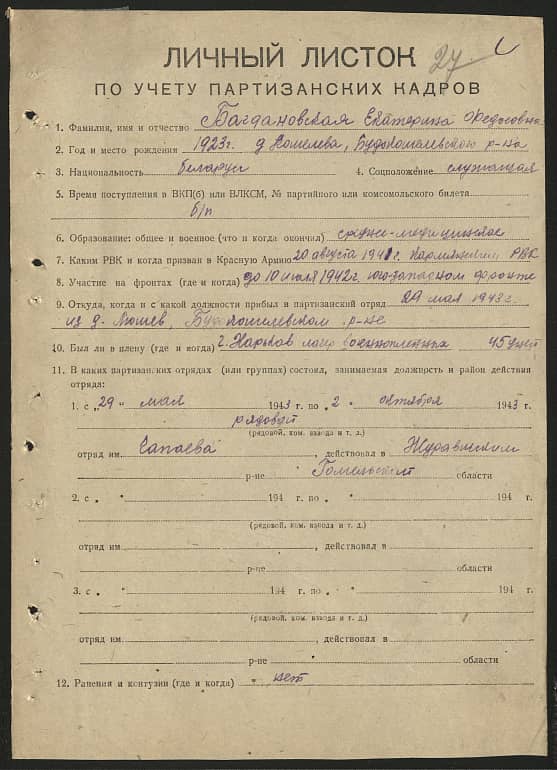 27
ЛИЧНЫЙ ЛИСТОК
ПО УЧЕТУ ПАРТИЗАНСКИХ КАДРОВ
1. Фамилия, имя и отчество Багдановская Екатерина Федосовна
2. Год и место рождения 1923г. д Кошелева, Будокошелевского р-на
3. Национальность беларус 4. Соцположение служащая
5. Время поступления в ВКП(б) или ВЛКСМ, № партийного или комсомольского билета
б/п
6. Образование: общее и военное (что и когда окончил) средне-медицинское
7. Каким РВК и когда призван в Красную Армию 20 августа 1941г. РВК
8. Участие на фронтах (где и когда) до 10 июля 1942г. юго-западном фронте
9. Откуда, когда и с какой должности прибыл в партизанский отряд 29 мая 1943г.
из д. Будокошелевском р-не
10. Был ли в плену (где и когда) г. Харьков лагр военнопленных 45 дней
11. В каких партизанских отрядах (или группах) состоял, занимаемая должность и район действия
отряда:
1. с „29" мая 1943 г. по „2 " октября 1943 г.
рядовой
(рядовой, ком. взвода и т. д.)
отряд им. Сапаева, действовал в Журавицким
р-не Гомельской области
2. с „ " 194 г. по „ " 194 г.
(рядовой, ком. взвода и т. д.)
отряд им. , действовал в
р-не области
3. с „ " 194 г. по „ " 194 г.
(рядовой, ком. взвода и т. д.)
отряд им. , действовал в
р-не области
12. Ранения и контузии (где и когда) нет